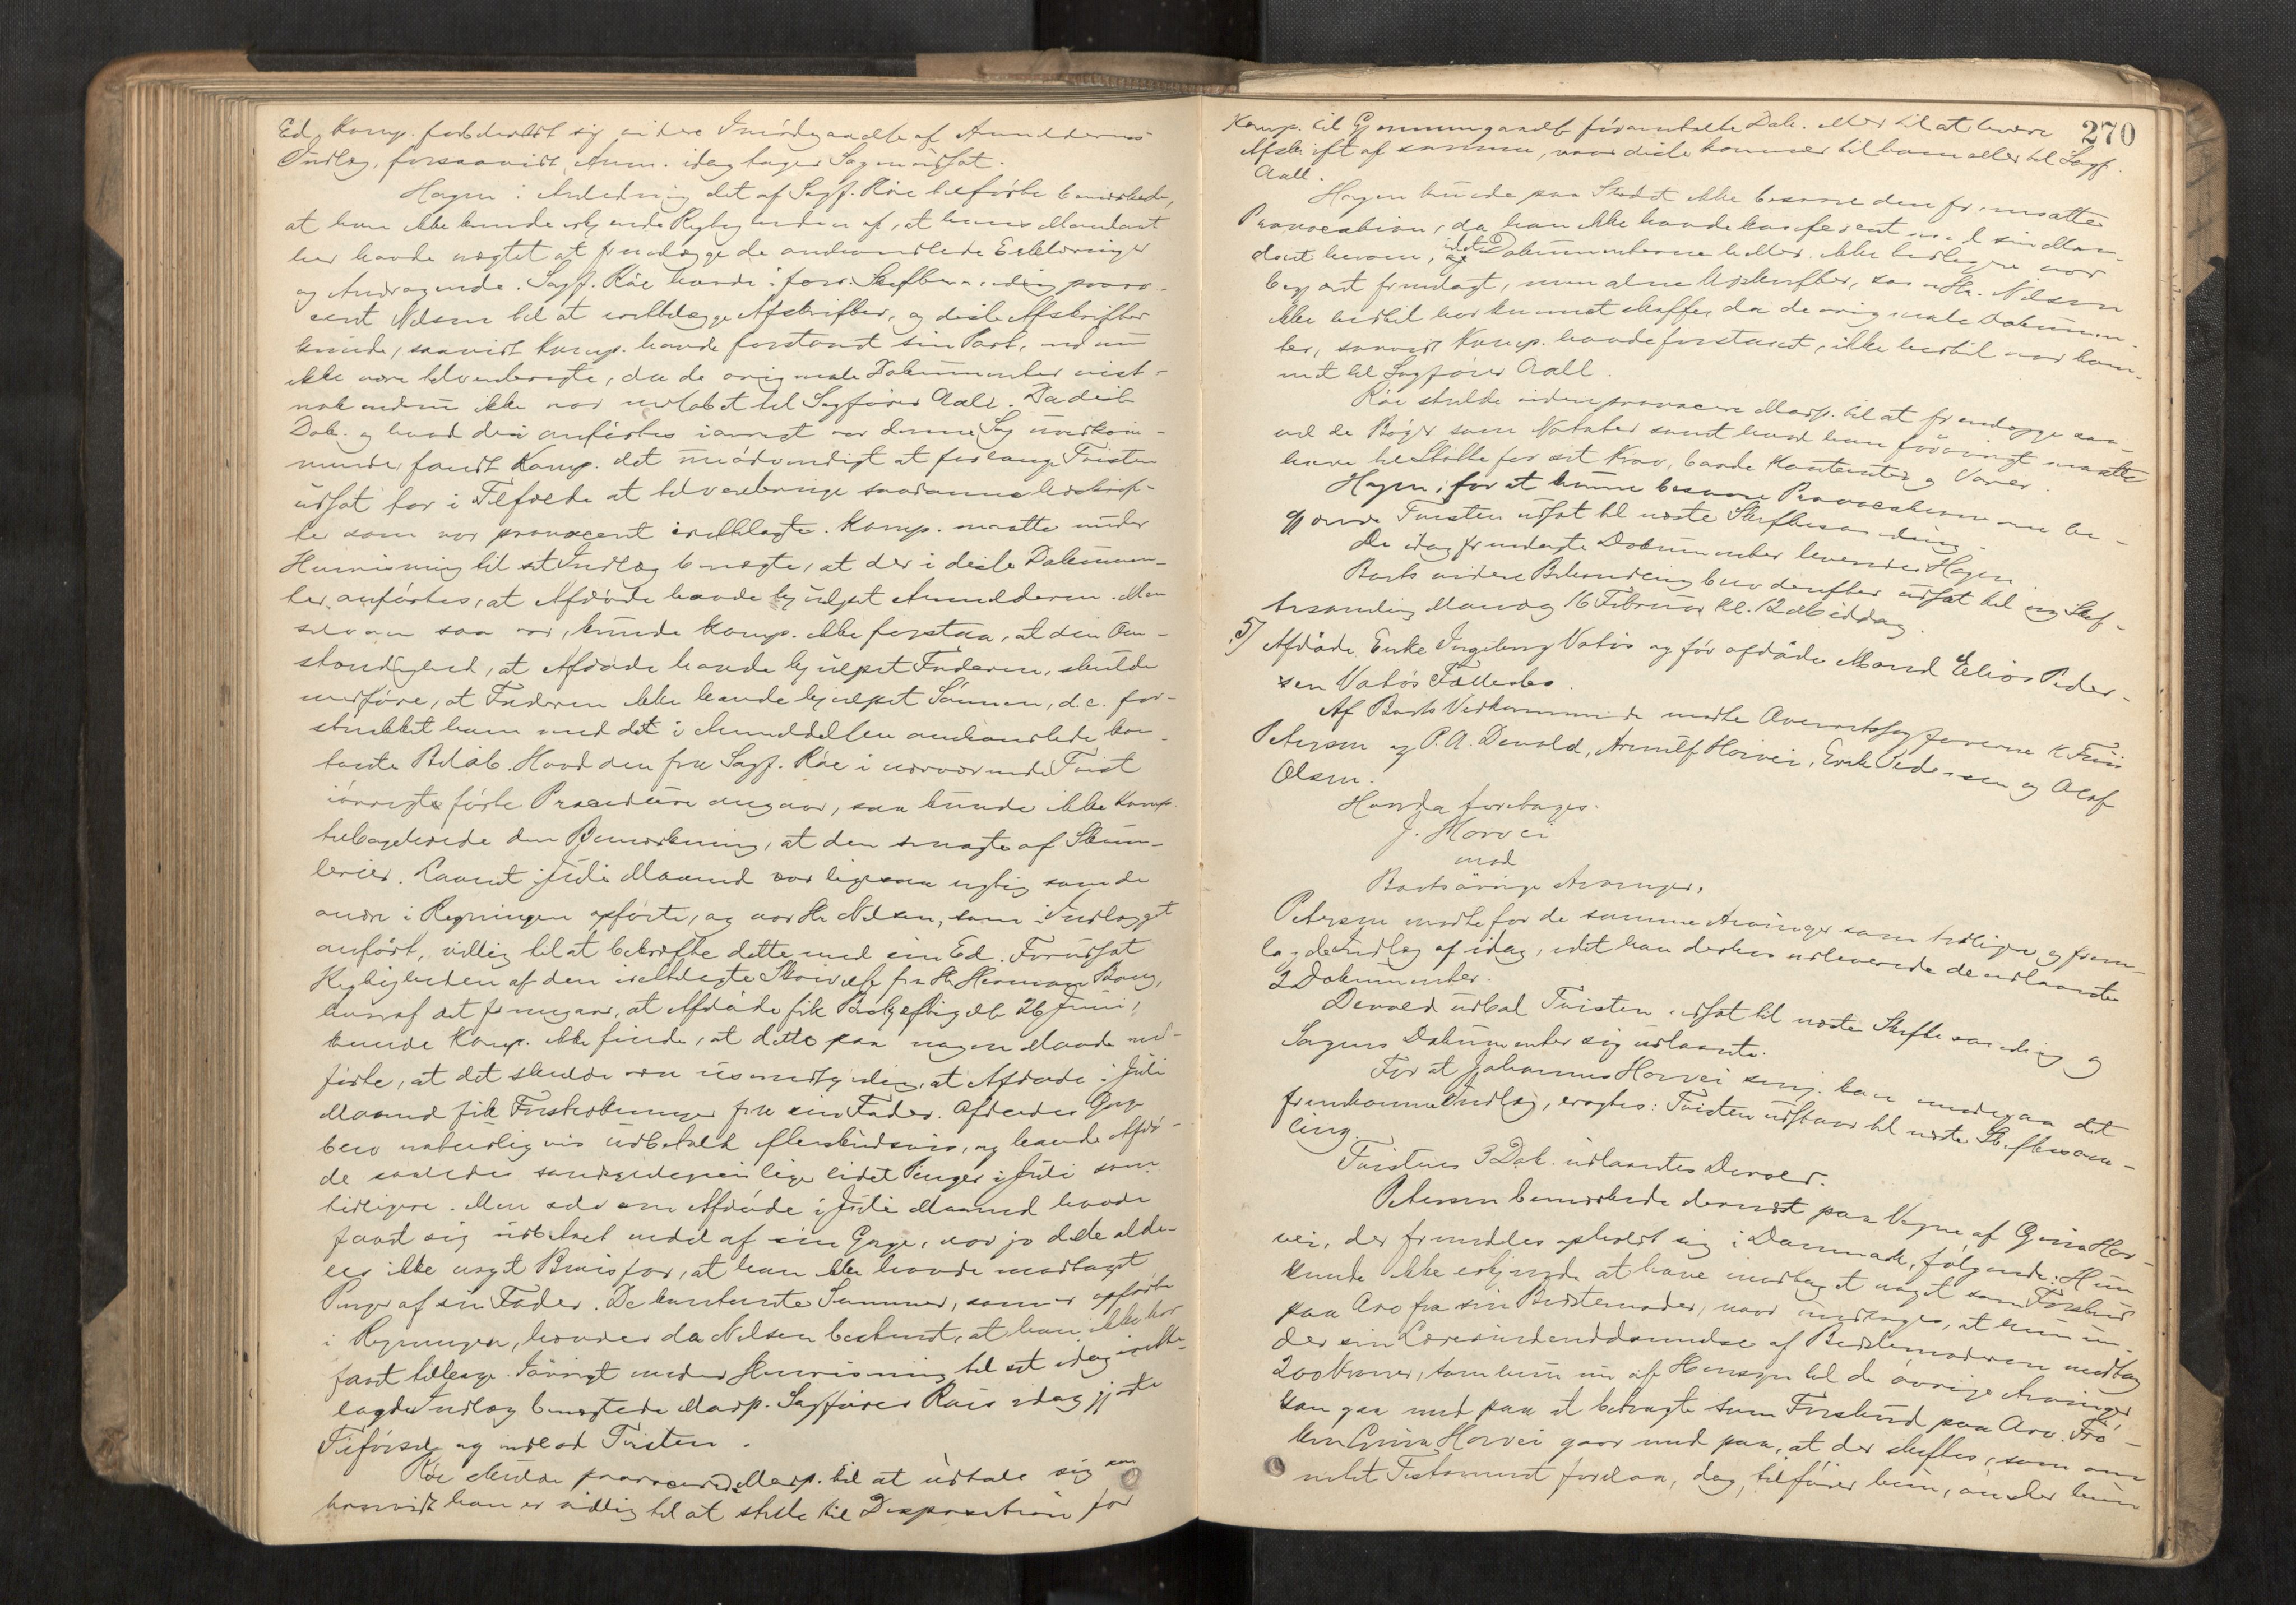 Ed. Komp. forbeholdt sig videre Imødegaaelse af Anmelderens
Indlæg, forsaavidt Anm. idag tager Sagen udsat.
Hagen i Anledning det af Sagf. Röe tilførte bemærkede,
at han ikke kunde erkjende Rigtigheden af, at hans Mandant
her havde nægtet at fremlægge de omhandlede Erklæringer
og Andragende. Sagf. Röe havde i forr. Skiftesamling provo-
ceret Nelsen til at irettelægge Afskrifter, og disse Afskrifter
kunde, saavidt Komp. havde forstaaet sin Part, endnu
ikke være tilveiebragte, da de originale Dokumenter vist-
nok endnu ikke var indløbet til Sagfører Aall. Da disse
Dok. og hvad deri anførtes iøvrigt var denne Sag uvedkom-
mende, fandt Komp. det unødvendigt at forlange Tvisten
udsat for i Tilfælde at tilveiebringe saadanne Udskrif-
ter som var provoceret irettelagte. Komp. maatte under
Henvisning til sit Indlæg benægte, at der i disse Dokumen-
ter anførtes, at Afdøde havde hjulpet Anmelderen. Men
selv om saa var, kunde Komp. ikke forstaa, at den Om-
stændighed, at Afdøde havde hjulpet Faderen, skulde
medføre, at Faderen ikke havde hjulpet Sønnen, d.e. for-
strukket ham med det i Anmeldelsen omhandlede kon-
tante Beløb. Hvad den fra Sagf. Röe i nærværende Tvist
iøvrigt førte Procedure angaar, saa kunde ikke Komp.
tilbageholde den Bemærkning, at den smagte af Skum-
lerier. Laanet i Juli Maaned var ligesaa rigtig som de
andre i Regningen opførte, og var Hr. Nelsen, som i Indlægget
anført, villig til at bekræfte dette med sin Ed. Forudsat
Rigtigheden af den irettelagte Skrivelse fra Hr. Herman Bang,
hvoraf det fremgaar, at Afdøde fik Beskjæftigelse 26 Juni,
kunde Komp. ikke finde, at dette paa nogen Maade med-
førte, at det skulde være usandsynlig, at Afdøde i Juli
Maaned fik Forstrækninger fra sin Fader. Afdødes Gage
blev naturligvis udbetalt efterskudsvis, og havde Afdø-
de saaledes sandsynligvis lige lidet Penger i Juli som
tidligere. Men selv om Afdøde i Juli Maaned havde
faaet sig udbetalt endel af sin Gage, var jo dette alde-
les ikke noget Bevis for, at han ikke havde modtaget
Penge af sin Fader. De kontante Summer, som er opførte
i Regningen, hævder da Nelsen bestemt, at han ikke har
faaet tilbage. Iøvrigt under Henvisning til sit idag irette-
lagde Indlæg benægtede Marp. Sagfører Röes idag gjorte
Tilførsel og indlod Tvisten.
Röe skulde provocere Marp. til at udtale sig om
hvorvidt han er villig til at stille til Disposition for
270
Komp. til Gjennemgaaelse føromtalte Dok. eller til at levere
Afskrift af samme, naar disse kommer tilhænde eller til Sagf.
Aall.
Hagen kunde paa Stedet ikke besvare den fremsatte
Provocation, da han ikke havde konfereret med sin Man-
dant herom, idet og Dokumenterne heller ikke tidligere var
begjært fremlagt, men alene Udskrifter, som Hr. Nelsen
ikke hidtil har kunnet skaffe, da de originale Dokumen-
ter, saavidt Komp. havde forstaaet, ikke hidtil var kom-
met til Sagfører Aall.
Röe skulde videre provocere Marp. til at fremlægge saa-
vel de Bøger som Notater samt hvad han forøvrigt maatte
have til Støtte for sit Krav, baade Kontanter og Varer.
Hagen, for at kunne besvare Provocationen be-
gjærede Tvisten udsat til næste Skiftesamling.
De idag fremlagte Dokumenter leveredes Hagen.
Boets videre Behandling blev derefter udsat til ny Skif-
tesamling Mandag 16 Februar Kl. 12 Middag.
5) Afdøde Enke Ingeborg Vatös og før afdøde Mand Elias Peder-
sen Vatös Fællesbo.
Af Boets Vedkommende mødte Overretssagførerne K. Friis
Petersen og P. A. Devold, Arnulf Horvei, Erik Pedersen og Olaf
Olsen.
Hvorda foretages:
J. Horvei
mod
Boets øvrige Arvinger.
Petersen mødte for de samme Arvinger som tidligere og frem-
lagde Indlæg af idag, idet han derhos udleverede de udlaante
2 Dokumenter.
Devold udbad Tvisten udsat til næste Skiftesamling og
Sagens Dokumenter sig udlaante.
For at Johannes Horvei senj. kan imødegaa det
fremkomne Indlæg, eragtes: Tvisten udstaar til næste Skiftesam-
ling.
Tvistens 3 Dok. udlaantes Devold.
Petersen bemærkede dernæst paa Vegne af Gina Hor-
vei, der fremdeles opholdt sig i Danmark, følgende: Hun
kunde ikke erkjende at have modtaget noget som Forskud
paa Arv fra sin Bedstemoder, naar undtages, at hun un-
der sin Lærerindeuddannelse af Bedstemoderen modtog
200 Kroner, som hun nu af Hensyn til de øvrige Arvinger
kan gaa med paa at betragte som Forskud paa Arv. Frø-
ken Gina Horvei gaar med paa, at der skiftes, som om
intet Testament forelaa, dog, tilføier hun, ønsker hun